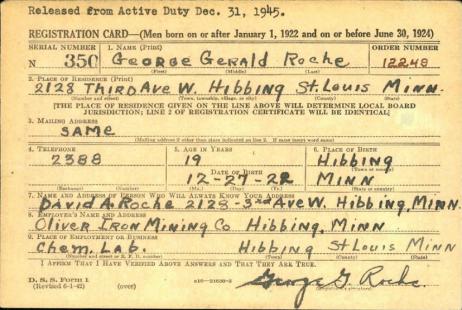 Released from Active Duty Dec. 31, 1945.
REGISTRATION CARD—(Men born on or after January 1, 1922 and on or before June 30, 1924)
SERIAL NUMBER 1. NAME (Print) ORDER NUMBER
N 350 GEORGE GERALD ROCHE 12248
(First) (Middle) (Last)
2. PLACE OF RESIDENCE (Print)
2128 THIRD AVE W. HIBBING ST. LOUIS MINN.
(Number and street) (Town, township, village, or city) (County) (State)
[THE PLACE OF RESIDENCE GIVEN ON THE LINE ABOVE WILL DETERMINE LOCAL BOARD
JURISDICTION; LINE 2 OF REGISTRATION CERTIFICATE WILL BE IDENTICAL]
3. MAILING ADDRESS
SAME
(Mailing address if other than place indicated on line 2. If same insert word same)
4. TELEPHONE 5. AGE IN YEARS 6. PLACE OF BIRTH
2388 19 HIBBING
DATE OF BIRTH (Town or county)
12-27-22 MINN
(Exchange) (Number) (Mo.) (Day) (Yr.) (State or country)
7. NAME AND ADDRESS OF PERSON WHO WILL ALWAYS KNOW YOUR ADDRESS
DAVID A. ROCHE 2128-3rd AVE W. HIBBING, MINN.
8. EMPLOYER'S NAME AND ADDRESS
OLIVER IRON MINING CO HIBBING, MINN
9. PLACE OF EMPLOYMENT OR BUSINESS
CHEM. LAB. HIBBING ST LOUIS MINN
(Number and street or R. F. D. number) (Town) (County) (State)
I AFFIRM THAT I HAVE VERIFIED ABOVE ANSWERS AND THAT THEY ARE TRUE.
D. S. S. Form 1
(Revised 6-1-42) (over) George G. Roche